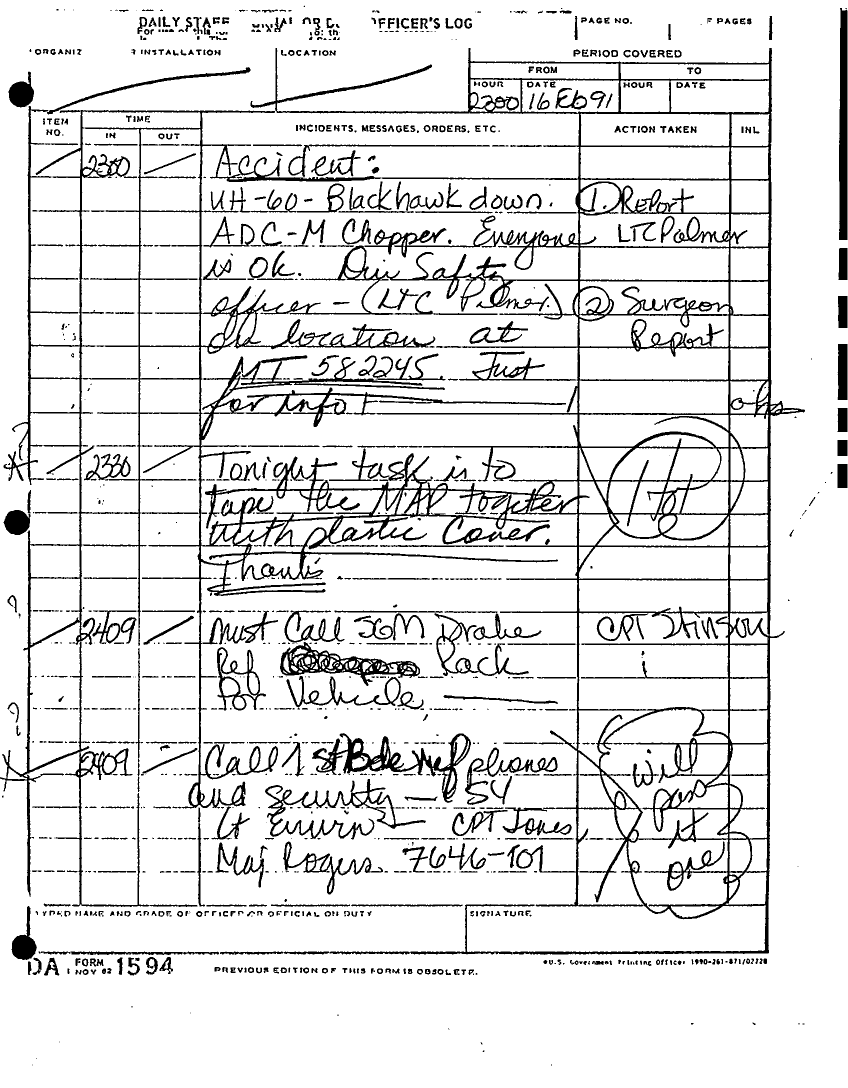 DAILY STAFF OR OFFICER'S LOG
PAGE NO. PAGES
INSTALLATION LOCATION PERIOD COVERED
FROM TO
HOUR DATE HOUR DATE
2300 16 Feb 91
ITEM NO. TIME INCIDENTS, MESSAGES, ORDERS, ETC. ACTION TAKEN INL
IN OUT
2300 Accident:
UH-60 - Blackhawk down. 1. Report
ADC-M Chopper. Everyone LTC Palmer
is Ok. Div Safety
officer - (LTC Palmer) 2 Surgeon
on location at Report
MT 582245. Just
for info!
2330 Tonight task is to
tape the MAP together
with plastic Cover.
Thanks.
2409 Must Call SGM Drake CPT Stinson
Ref Rack
for Vehicle,
2409 Call 1st Bde ref phones will
and security - 54 pass
CPT Jones, it
Maj Rogers 7646-101 one
TYPED NAME AND GRADE OF OFFICER OR OFFICIAL ON DUTY SIGNATURE
DA FORM 1594
1 NOV 62
PREVIOUS EDITION OF THIS FORM IS OBSOLETE.
*U.S. Government Printing Office: 1990-261-871/02228